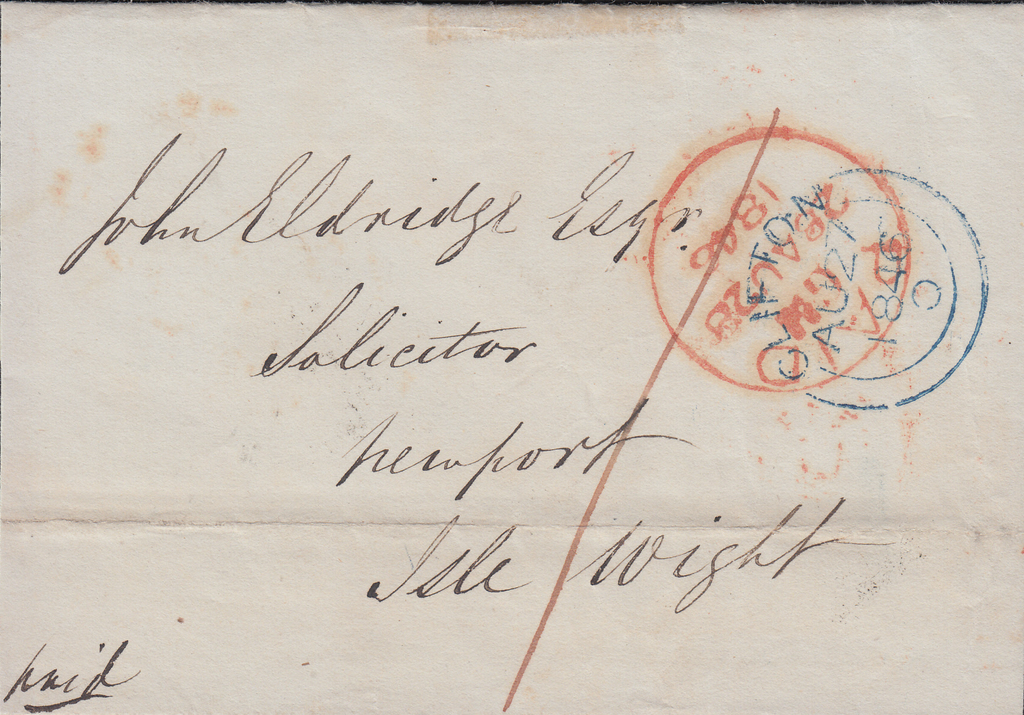 John Eldridge Esqr.
Solicitor
newport
Isle Wight
paid
CLIFTON
AU 27
1846
C
PAID
28 AU 28
1846